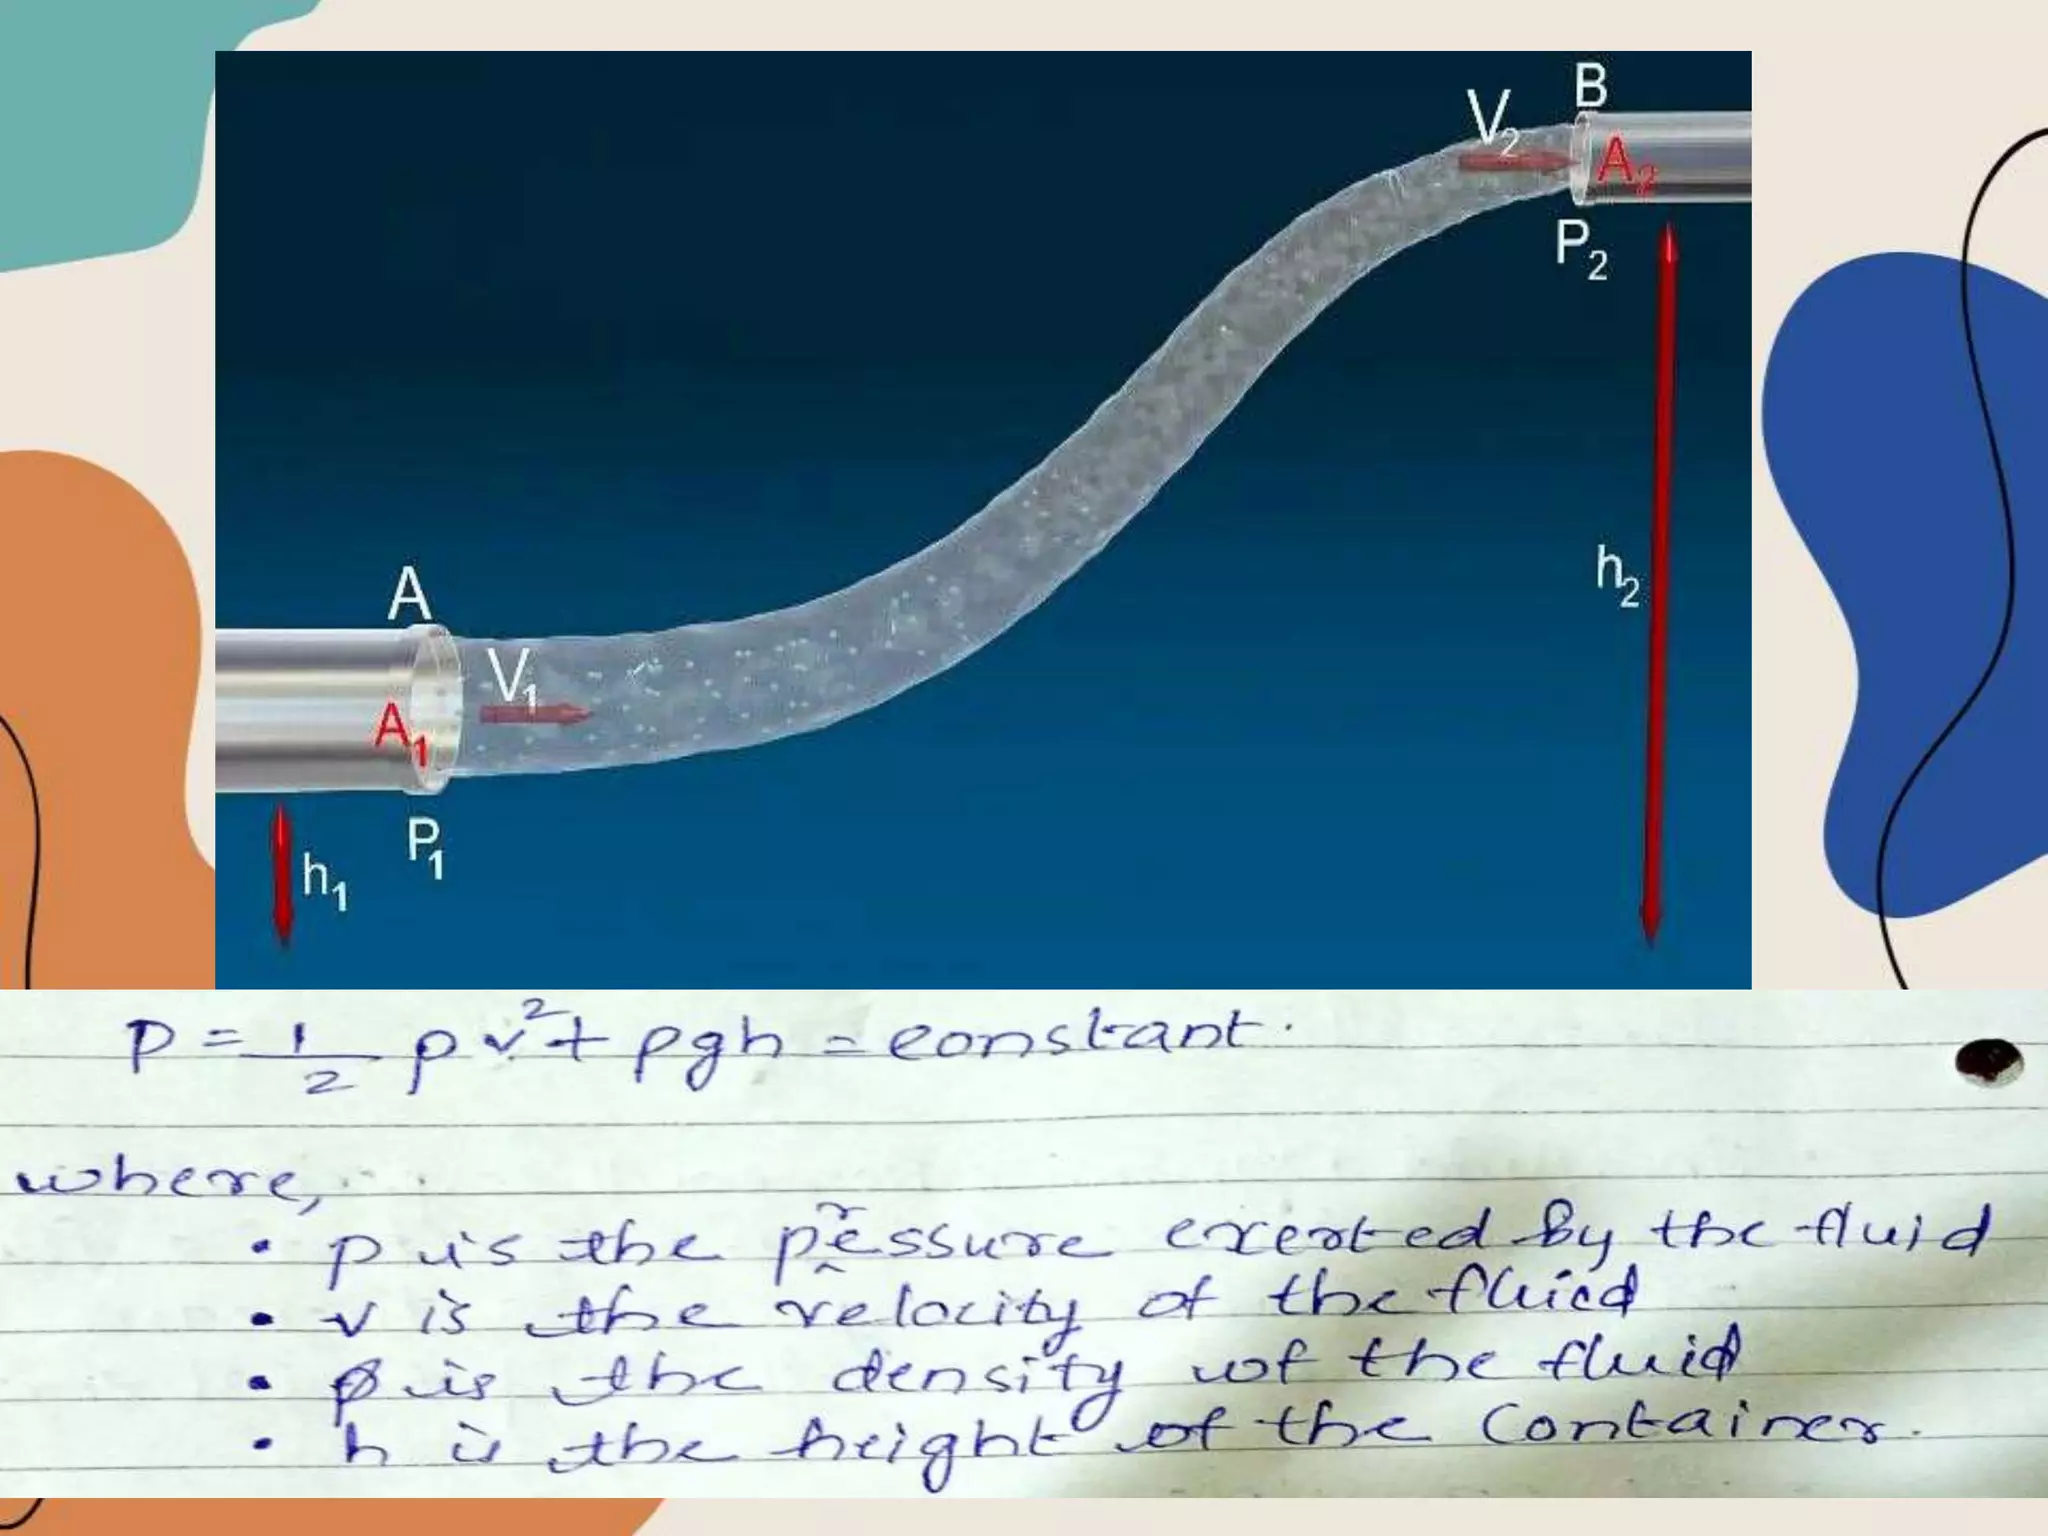 B
V₂
A₂
P₂
h₂
A
V₁
A₁
P₁
h₁
P = 1/2 ρv² + ρgh = constant.
where,
• p is the pressure exerted by the fluid
• v is the velocity of the fluid
• ρ is the density of the fluid
• h is the height of the container.